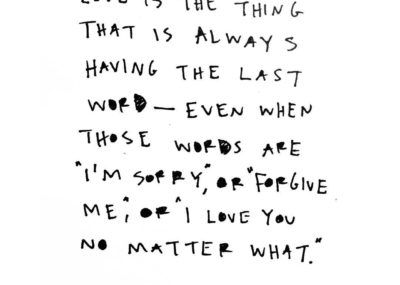 LOVE IS THE THING
THAT IS ALWAYS
HAVING THE LAST
WORD — EVEN WHEN
THOSE WORDS ARE
"I'M SORRY," OR "FORGIVE
ME," OR "I LOVE YOU
NO MATTER WHAT."